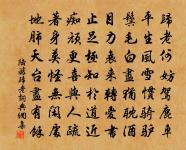 歸老何妨駕鹿車
平生風雪慣騎驢
鬢毛白盡猶耽酒
目力衰來轉愛書
止足極知於道近
癡頑更喜與人疏
著身莫怪無閑處
地肺天台盡有餘